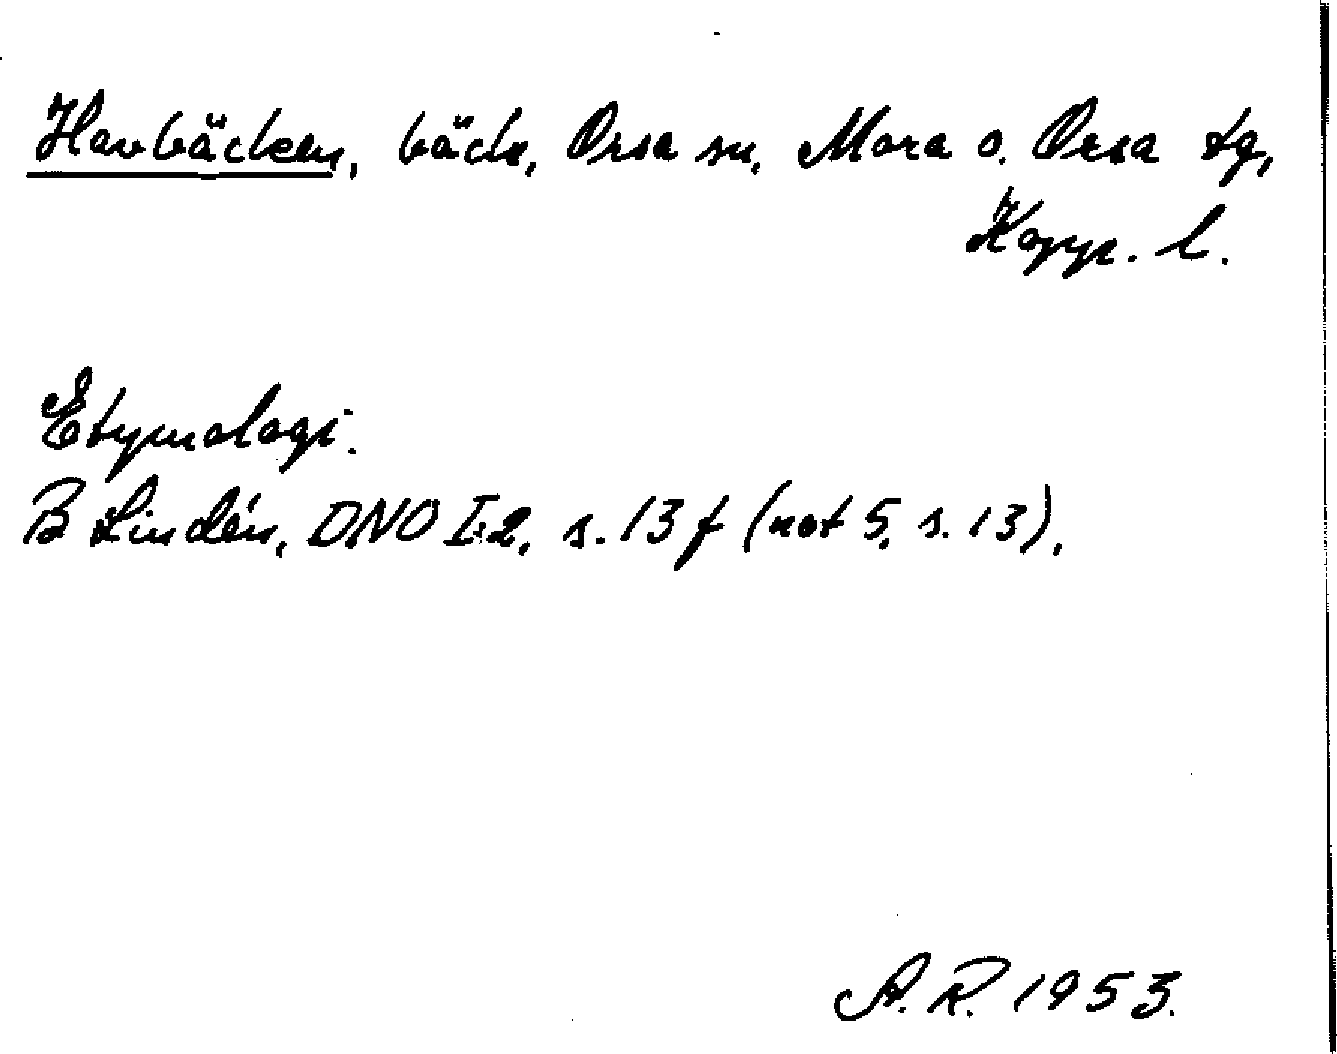 Havbäcken, bäck, Orsa sn, Mora o. Orsa tg,
Kopp. l.
Etymologi:
B Lindén, DNO I:2, s. 13 f (not 5, s. 13).
A. R. 1953.